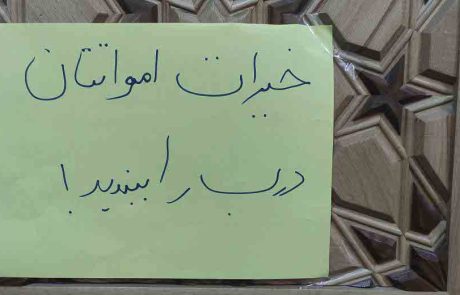 خیرات امواتتان
درب را ببندید!